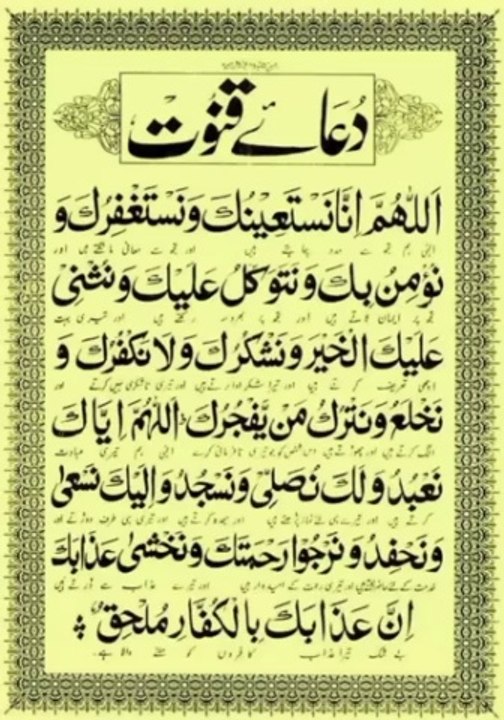 دُعَائے قنُوت
اَللّٰهُمَّ اِنَّا نَسْتَعِيْنُكَ وَنَسْتَغْفِرُكَ وَ
الٰہی ہم تجھ سے مدد چاہتے ہیں اور تجھ سے معافی مانگتے ہیں اور
نُؤْمِنُ بِكَ وَنَتَوَكَّلُ عَلَيْكَ وَنُثْنِیْ
تجھ پر ایمان لاتے ہیں اور تجھ پر بھروسہ رکھتے ہیں اور تیری بہت
عَلَيْكَ الْخَيْرَ وَنَشْكُرُكَ وَلَا نَكْفُرُكَ وَ
اچھی تعریف کرتے ہیں اور تیرا شکر ادا کرتے ہیں اور تیری ناشکری نہیں کرتے اور
نَخْلَعُ وَنَتْرُكُ مَنْ يَّفْجُرُكَ اَللّٰهُمَّ اِيَّاكَ
الگ کرتے ہیں اور چھوڑتے ہیں اس شخص کو جو تیری نافرمانی کرے الٰہی ہم تیری عبادت
نَعْبُدُ وَلَكَ نُصَلِّیْ وَنَسْجُدُ وَاِلَيْكَ نَسْعٰی
کرتے ہیں اور تیرے ہی لئے نماز پڑھتے ہیں اور سجدہ کرتے ہیں اور تیری ہی طرف دوڑتے اور
وَنَحْفِدُ وَنَرْجُوْا رَحْمَتَكَ وَنَخْشٰی عَذَابَكَ
خدمت کے لئے حاضر ہوتے ہیں اور تیری رحمت کے امیدوار ہیں اور تیرے عذاب سے ڈرتے ہیں
اِنَّ عَذَابَكَ بِالْكُفَّارِ مُلْحِقٌ
بے شک تیرا عذاب کافروں کو ملنے والا ہے۔